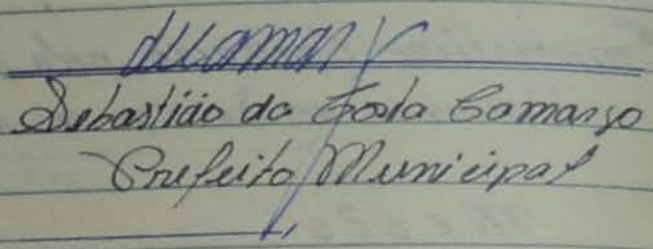 Sebastião da Costa Camargo
Prefeito Municipal